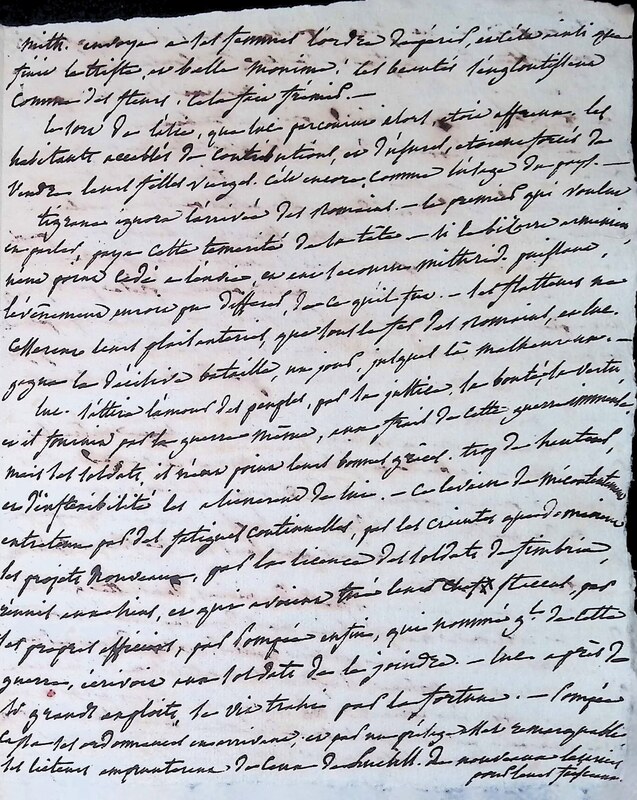 mith. envoya a ses femmes l'ordre de périr, et c'est ainsi que
finit la triste et belle monime! ses beautés s'engloutissent
comme des fleurs. cela fait frémir —
le sort de l'asie, que luc. parcourut alors, etoit affreux, les
habitants accablés de contributions, et d'usures, etoient forcés de
vendre leurs filles vierges. c'est encore, comme l'usage du pays. —
tigrane ignora l'arrivée des romains. — le premier qui voulut
en parler, paya cette temerité de sa tête — si le bizarre armenien
n'eut point cedé a l'orgueil, en eut secouru mithrid. puissant,
l'évènement auroit pu différer, de ce qu'il fut. — les flatteurs ne
cesserent leurs plaisanteries, que sous le fer des romains, et luc.
gagna la décisive bataille, un jour, jusques là malheureux. —
luc. s'attira l'amour des peuples, par sa justice, sa bonté, sa vertu
et il fournit par la guerre même, aux frais de cette guerre immense
mais ses soldats, il n'eut point leurs bonnes grâces. trop de hauteur,
et d'inflexibilité les alienerent de lui. — ce levain de mécontentement
entretenu par des fatigues continuelles, par les craintes que donnoient
les projets nouveaux, par la licence des soldats de fimbria,
réunis aux siens, et qui avoient tué leurs chefs flaccus, par
ses propres officiers, par Pompée enfin, qui nommé gl. de cette
guerre, écrivoit aux soldats de le joindre. — luc. après de
si grands exploits, se vit trahi par la fortune. — Pompée
cassa ses ordonnances en arrivant, et par un présage assez remarquable
ses licteurs emprunterent de ceux de Lucull. de nouveaux lauriers
pour leurs faisceaux.